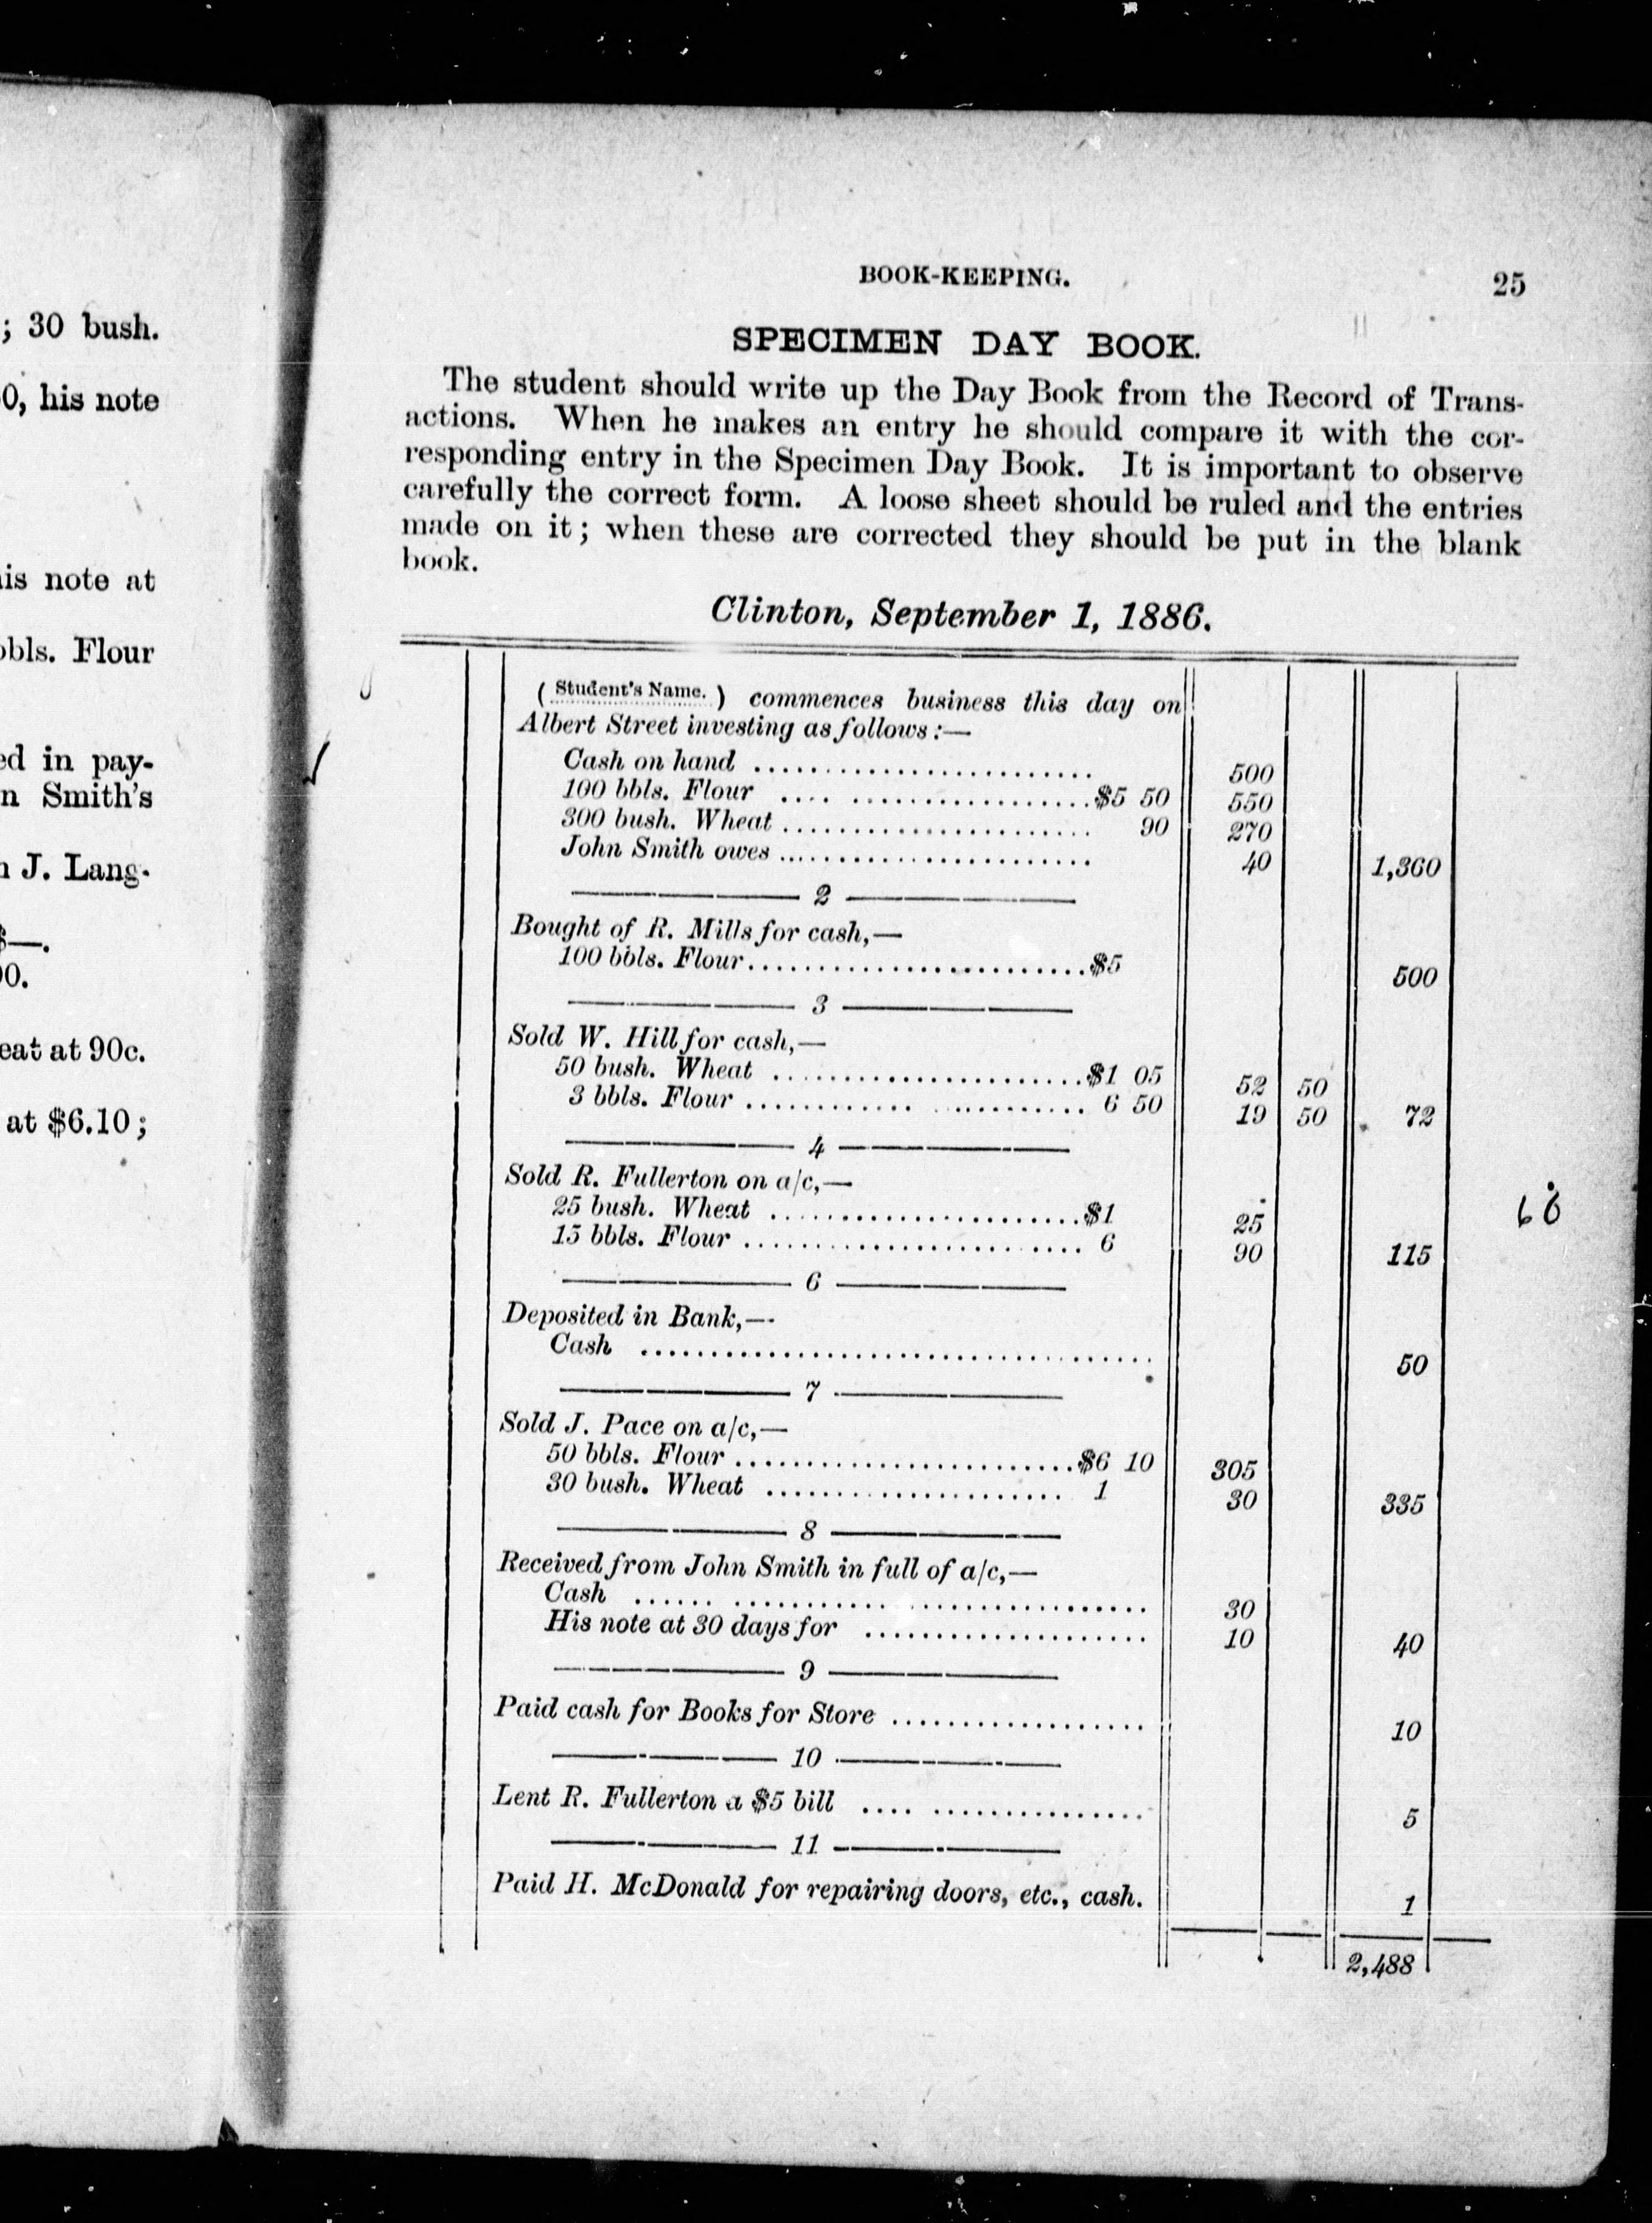 ; 30 bush.
0, his note
is note at
bbls. Flour
ed in pay-
n Smith's
n J. Lang-
$—.
00.
eat at 90c.
at $6.10;
BOOK-KEEPING. 25
SPECIMEN DAY BOOK.
The student should write up the Day Book from the Record of Trans-
actions. When he makes an entry he should compare it with the cor-
responding entry in the Specimen Day Book. It is important to observe
carefully the correct form. A loose sheet should be ruled and the entries
made on it; when these are corrected they should be put in the blank
book.
Clinton, September 1, 1886.
( Student's Name. ) commences business this day on
Albert Street investing as follows:—
Cash on hand ........................ 500
100 bbls. Flour ........................ $5 50 550
300 bush. Wheat ........................ 90 270
John Smith owes ........................ 40 1,360
2
Bought of R. Mills for cash,—
100 bbls. Flour ........................ $5 500
3
Sold W. Hill for cash,—
50 bush. Wheat ........................ $1 05 52 50
3 bbls. Flour ........................ 6 50 19 50 72
4
Sold R. Fullerton on a/c,—
25 bush. Wheat ........................ $1 25
15 bbls. Flour ........................ 6 90 115
6
Deposited in Bank,—
Cash ........................ 50
7
Sold J. Pace on a/c,—
50 bbls. Flour ........................ $6 10 305
30 bush. Wheat ........................ 1 30 335
8
Received from John Smith in full of a/c,—
Cash ........................ 30
His note at 30 days for ........................ 10 40
9
Paid cash for Books for Store ........................ 10
10
Lent R. Fullerton a $5 bill ........................ 5
11
Paid H. McDonald for repairing doors, etc., cash. 1
2,488